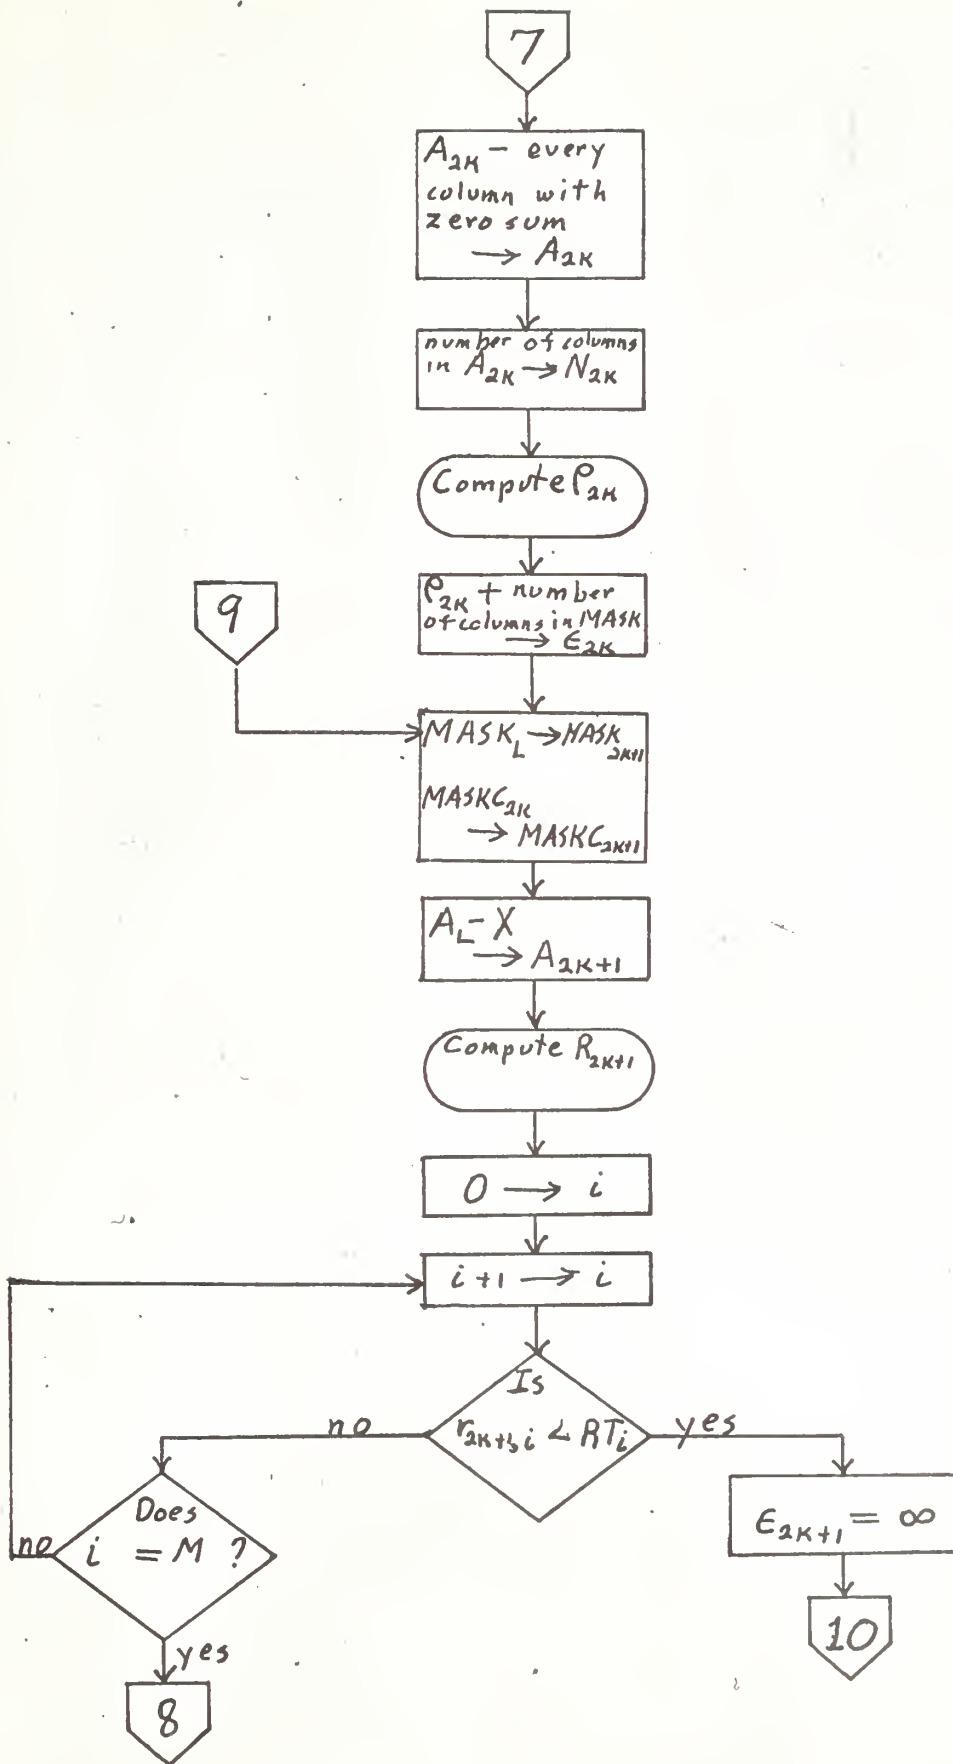 7
A₂ₖ – every
column with
zero sum
→ A₂ₖ
number of columns
in A₂ₖ → N₂ₖ
Compute ρ₂ₖ
ρ₂ₖ + number
of columns in MASK
→ ϵ₂ₖ
9
MASK_L → MASK₂ₖ₊₁
MASKC₂ₖ
→ MASKC₂ₖ₊₁
A_L – X
→ A₂ₖ₊₁
Compute R₂ₖ₊₁
0 → i
i+1 → i
Is
r₂ₖ₊₁,ᵢ < RTᵢ
no
yes
Does
i = M ?
no
yes
8
ϵ₂ₖ₊₁ = ∞
10